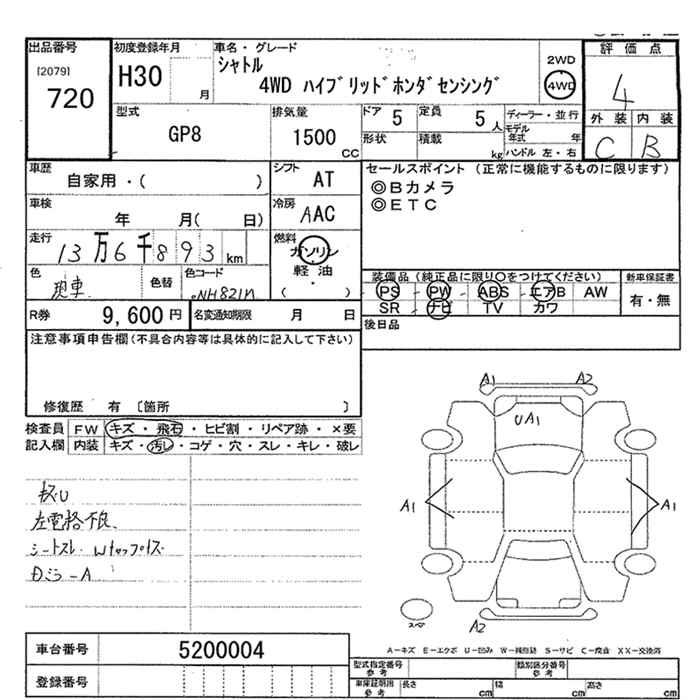 出品番号
[2079]
720
初度登録年月
H30
月
車名・グレード
シャトル
4WD ハイブリッドホンダセンシング
2WD
4WD
評価点
4
外装 内装
C B
型式
GP8
排気量
1500
CC
ドア
5
定員
5
人
形状
積載
kg
ディーラー・並行
モデル年式 年
ハンドル 左・右
車歴
自家用・( )
シフト
AT
セールスポイント (正常に機能するものに限ります)
◎Bカメラ
◎ETC
車検
年 月( 日)
冷房
AAC
走行
13万6千893km
燃料
ガソリン
軽油
( ・ )
色
色替
色コード
NH821M
装備品(純正品に限り○をつけてください)
PS PW ABS エアB AW
SR ナビ TV カワ
新車保証書
有・無
R券
9,600円
名変通知期限 月 日
後日品
注意事項申告欄(不具合内容等は具体的に記入して下さい)
修復歴 有 〔箇所 〕
検査員
記入欄
FW キズ・飛石・ヒビ割・リペア跡・×要
内装 キズ・汚レ・コゲ・穴・スレ・キレ・破レ
左電格不良
シートスレ
Dミラ-A
A1 A2
UA1
A1 A1
A2
スペア
A-キズ E-エクボ U-凹み W-補修跡 S-サビ C-腐食 XX-交換済
車台番号
5200004
登録番号
型式指定番号
参考
類別区分番号
参考
車庫証明用
参考
長さ cm
幅 cm
高さ cm